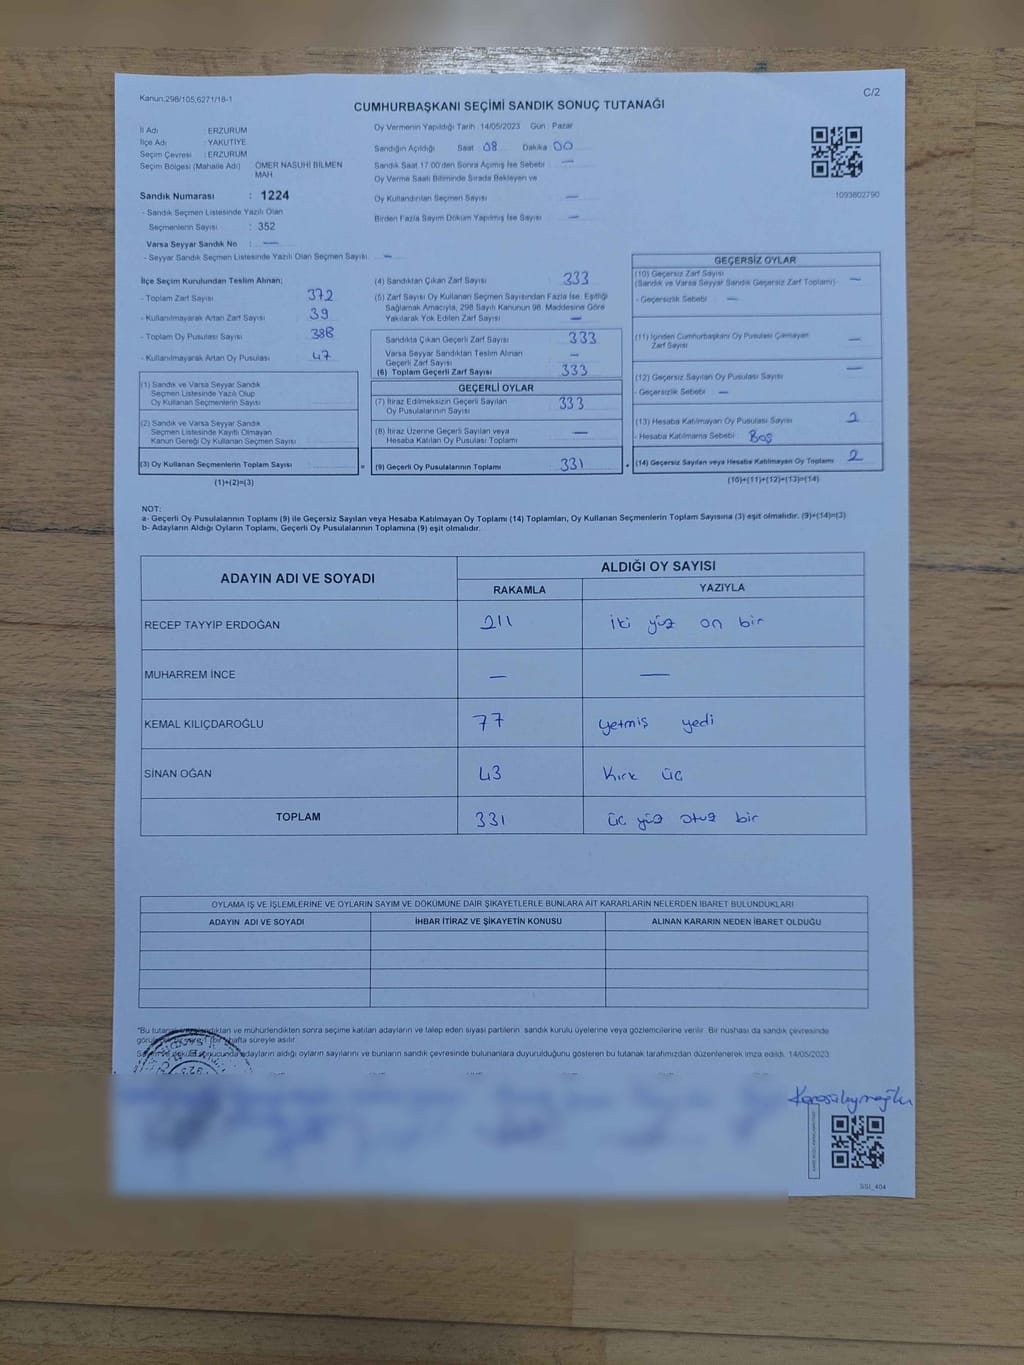 Kanun:298/105,6271/18-1
C/2
CUMHURBAŞKANI SEÇİMİ SANDIK SONUÇ TUTANAĞI
İl Adı : ERZURUM
İlçe Adı : YAKUTİYE
Seçim Çevresi : ERZURUM
Seçim Bölgesi (Mahalle Adı) ÖMER NASUHİ BİLMEN MAH
Sandık Numarası : 1224
- Sandık Seçmen Listesinde Yazılı Olan
Seçmenlerin Sayısı : 352
Varsa Seyyar Sandık No : —
- Seyyar Sandık Seçmen Listesinde Yazılı Olan Seçmen Sayısı : —
Oy Vermenin Yapıldığı Tarih : 14/05/2023 Gün : Pazar
Sandığın Açıldığı Saat 08 Dakika 00
Sandık Saat 17.00'den Sonra Açılmış İse Sebebi : —
Oy Verme Saati Bitiminde Sırada Bekleyen ve
Oy Kullandırılan Seçmen Sayısı —
Birden Fazla Sayım Döküm Yapılmış İse Sayısı : —
1093802790
İlçe Seçim Kurulundan Teslim Alınan;
- Toplam Zarf Sayısı 372
- Kullanılmayarak Artan Zarf Sayısı 39
- Toplam Oy Pusulası Sayısı 388
- Kullanılmayarak Artan Oy Pusulası 47
(1) Sandık ve Varsa Seyyar Sandık
Seçmen Listesinde Yazılı Olup
Oy Kullanan Seçmenlerin Sayısı
(2) Sandık ve Varsa Seyyar Sandık
Seçmen Listesinde Kayıtlı Olmayan
Kanun Gereği Oy Kullanan Seçmen Sayısı
(3) Oy Kullanan Seçmenlerin Toplam Sayısı
(1)+(2)=(3)
(4) Sandıktan Çıkan Zarf Sayısı 333
(5) Zarf Sayısı Oy Kullanan Seçmen Sayısından Fazla İse, Eşitliği
Sağlamak Amacıyla, 298 Sayılı Kanunun 98. Maddesine Göre
Yakılarak Yok Edilen Zarf Sayısı —
Sandıkta Çıkan Geçerli Zarf Sayısı 333
Varsa Seyyar Sandıktan Teslim Alınan
Geçerli Zarf Sayısı —
(6) Toplam Geçerli Zarf Sayısı 333
GEÇERLİ OYLAR
(7) İtiraz Edilmeksizin Geçerli Sayılan
Oy Pusulalarının Sayısı 333
(8) İtiraz Üzerine Geçerli Sayılan veya
Hesaba Katılan Oy Pusulası Toplamı —
= (9) Geçerli Oy Pusulalarının Toplamı 331
GEÇERSİZ OYLAR
(10) Geçersiz Zarf Sayısı
(Sandık ve Varsa Seyyar Sandık Geçersiz Zarf Toplamı) —
- Geçersizlik Sebebi : —
(11) İçinden Cumhurbaşkanı Oy Pusulası Çıkmayan
Zarf Sayısı —
(12) Geçersiz Sayılan Oy Pusulası Sayısı —
- Geçersizlik Sebebi : —
(13) Hesaba Katılmayan Oy Pusulası Sayısı 2
- Hesaba Katılmama Sebebi : Boş
+ (14) Geçersiz Sayılan veya Hesaba Katılmayan Oy Toplamı 2
(10)+(11)+(12)+(13)=(14)
NOT:
a- Geçerli Oy Pusulalarının Toplamı (9) ile Geçersiz Sayılan veya Hesaba Katılmayan Oy Toplamı (14) Toplamları, Oy Kullanan Seçmenlerin Toplam Sayısına (3) eşit olmalıdır. (9)+(14)=(3)
b- Adayların Aldığı Oyların Toplamı, Geçerli Oy Pusulalarının Toplamına (9) eşit olmalıdır.
ADAYIN ADI VE SOYADI
ALDIĞI OY SAYISI
RAKAMLA YAZIYLA
RECEP TAYYİP ERDOĞAN 211 iki yüz on bir
MUHARREM İNCE — —
KEMAL KILIÇDAROĞLU 77 yetmiş yedi
SİNAN OĞAN 43 kırk üç
TOPLAM 331 üç yüz otuz bir
OYLAMA İŞ VE İŞLEMLERİNE VE OYLARIN SAYIM VE DÖKÜMÜNE DAİR ŞİKAYETLERLE BUNLARA AİT KARARLARIN NELERDEN İBARET BULUNDUKLARI
ADAYIN ADI VE SOYADI İHBAR İTİRAZ VE ŞİKAYETİN KONUSU ALINAN KARARIN NEDEN İBARET OLDUĞU
*Bu ve mühürlendikten sonra seçime katılan adayların ve talep eden siyasi partilerin sandık kurulu üyelerine veya gözlemcilerine verilir. Bir nüshası da sandık çevresinde
hafta süreyle asılır.
adayların aldığı oyların sayılarını ve bunların sandık çevresinde bulunanlara duyurulduğunu gösteren bu tutanak tarafımızdan düzenlenerek imza edildi. 14/05/2023
Karasüleymanoğlu
SSİ_404